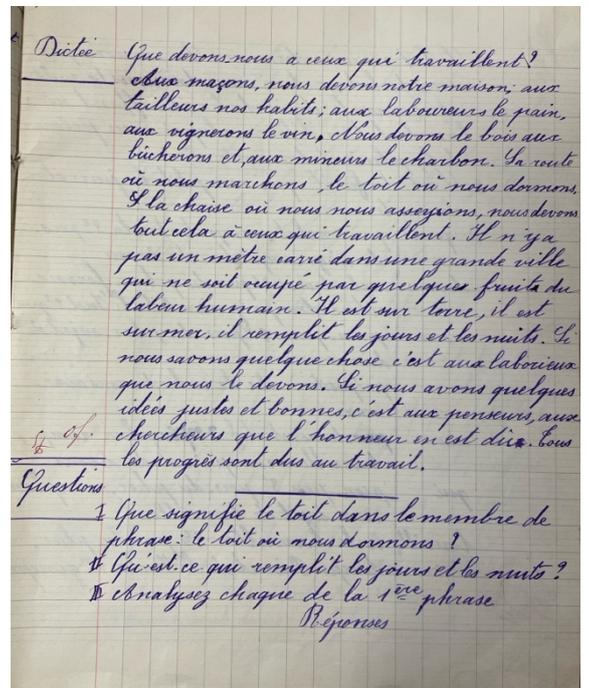 Dictée
Que devons nous à ceux qui travaillent ?
Aux maçons, nous devons notre maison; aux
tailleurs nos habits; aux laboureurs le pain,
aux vignerons le vin. Nous devons le bois aux
bûcherons et, aux mineurs le charbon. La route
où nous marchons, le toit où nous dormons,
la chaise où nous nous asseyions, nous devons
tout cela à ceux qui travaillent. Il n'y a
pas un mètre carré dans une grande ville
qui ne soit occupé par quelques fruits du
labeur humain. Il est sur terre, il est
sur mer, il remplit les jours et les nuits. Si
nous savons quelque chose c'est aux laborieux
que nous le devons. Si nous avons quelques
idées justes et bonnes, c'est aux penseurs, aux
chercheurs que l'honneur en est dû. Tous
les progrès sont dus au travail.
Questions
I Que signifie le toit dans le membre de
phrase: le toit où nous dormons ?
II Qu'est-ce qui remplit les jours et les nuits ?
III Analysez chaque de la 1ère phrase
Réponses